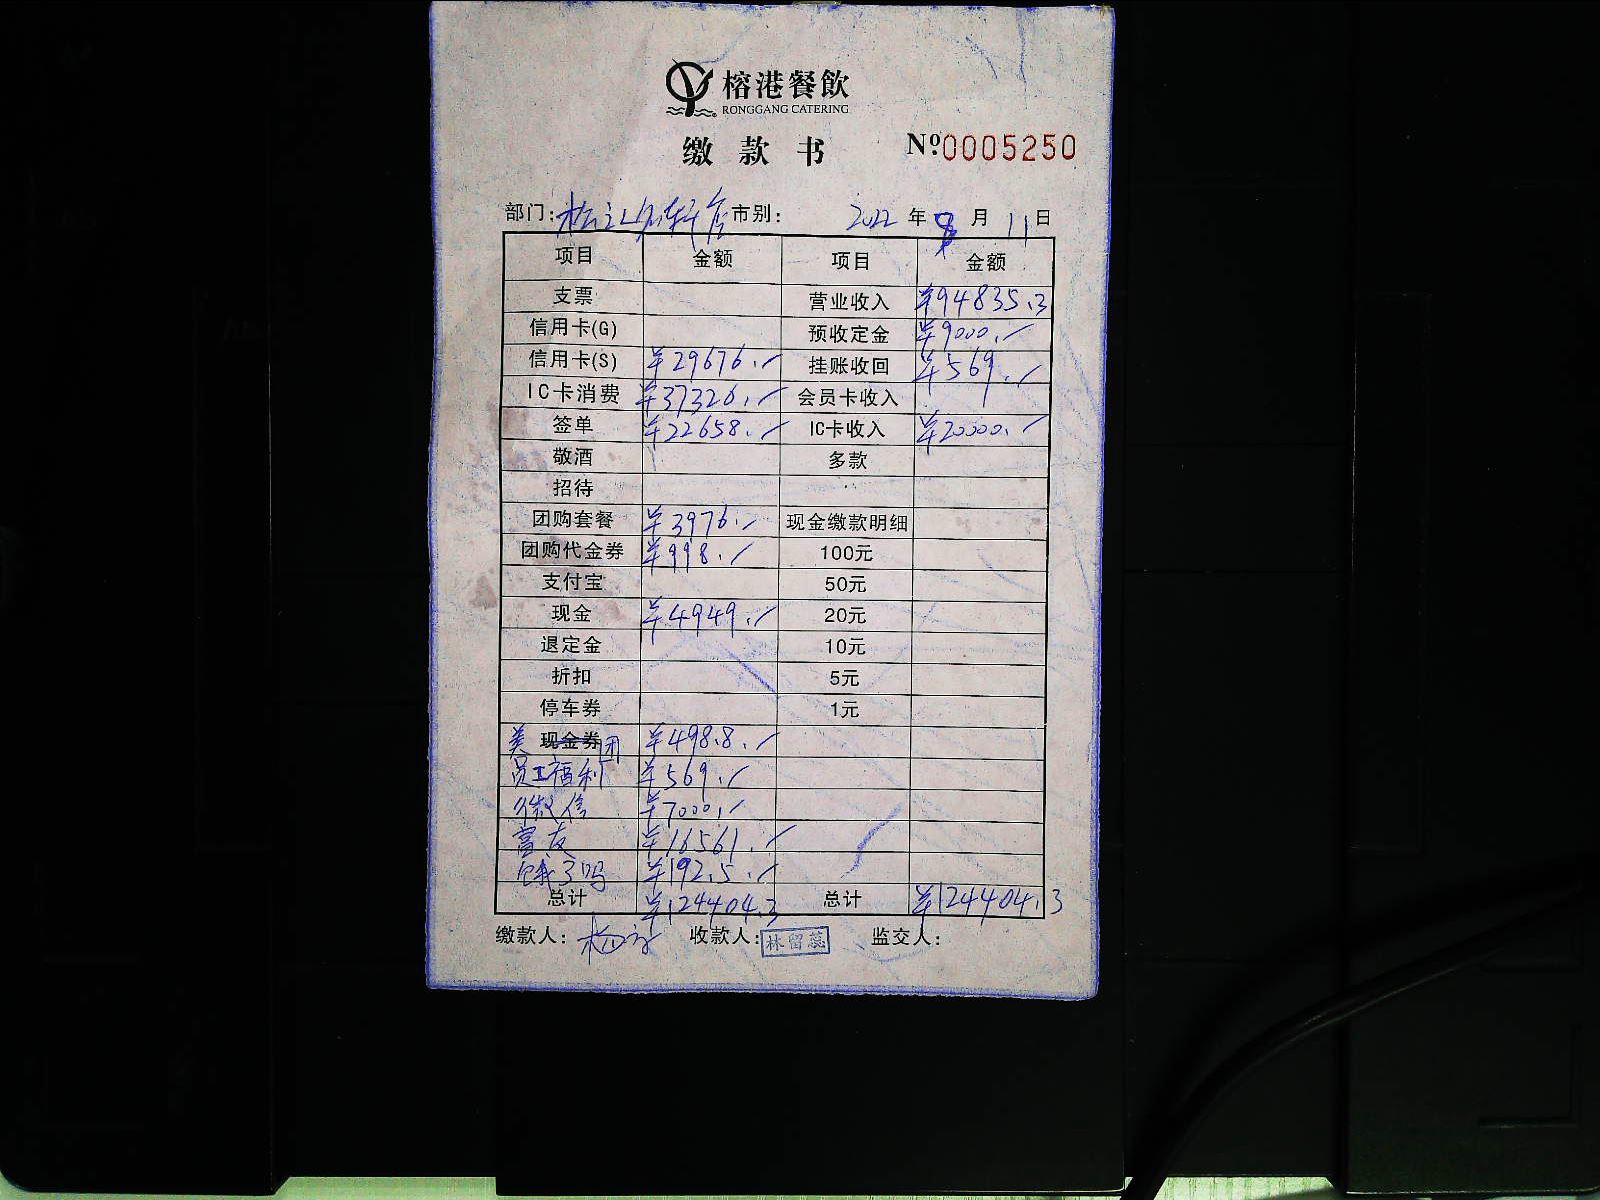 榕港餐飲
RONGGANG CATERING
缴款书 Nº0005250
部门: 店 市别: 2022 年 月 11 日
项目 金额 项目 金额
支票 营业收入 ¥94835.3
信用卡(G) 预收定金 ¥9000.
信用卡(S) ¥29676. 挂账收回 ¥569.
IC卡消费 ¥37326. 会员卡收入
签单 ¥22658. IC卡收入 ¥20000.
敬酒 多款
招待
团购套餐 ¥3976. 现金缴款明细
团购代金券 ¥998. 100元
支付宝 50元
现金 ¥4949. 20元
退定金 10元
折扣 5元
停车券 1元
美 现金券 团 ¥498.8.
员工福利 ¥569.
微信 ¥7000.
富友 ¥16561.
饿了吗 ¥192.5.
总计 ¥124404.3 总计 ¥124404.3
缴款人: 收款人: 林留蕊 监交人: